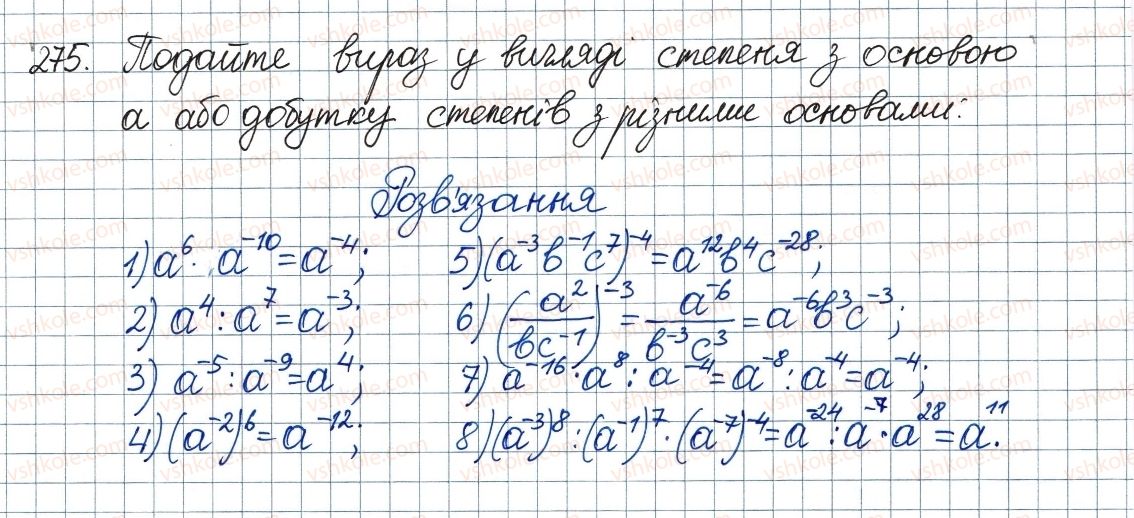 275. Подайте вираз у вигляді степеня з основою
а або добутку степенів з різними основами:
Розв'язання
1) a⁶ · a⁻¹⁰ = a⁻⁴;
2) a⁴ : a⁷ = a⁻³;
3) a⁻⁵ : a⁻⁹ = a⁴;
4) (a⁻²)⁶ = a⁻¹²;
5) (a⁻³ b⁻¹ c⁷)⁻⁴ = a¹² b⁴ c⁻²⁸;
6) (a² / bc⁻¹)⁻³ = a⁻⁶ / b⁻³c³ = a⁻⁶b³c⁻³;
7) a⁻¹⁶ · a⁸ : a⁻⁴ = a⁻⁸ : a⁻⁴ = a⁻⁴;
8) (a⁻³)⁸ : (a⁻¹)⁷ · (a⁻⁷)⁻⁴ = a⁻²⁴ : a⁻⁷ · a²⁸ = a¹¹.